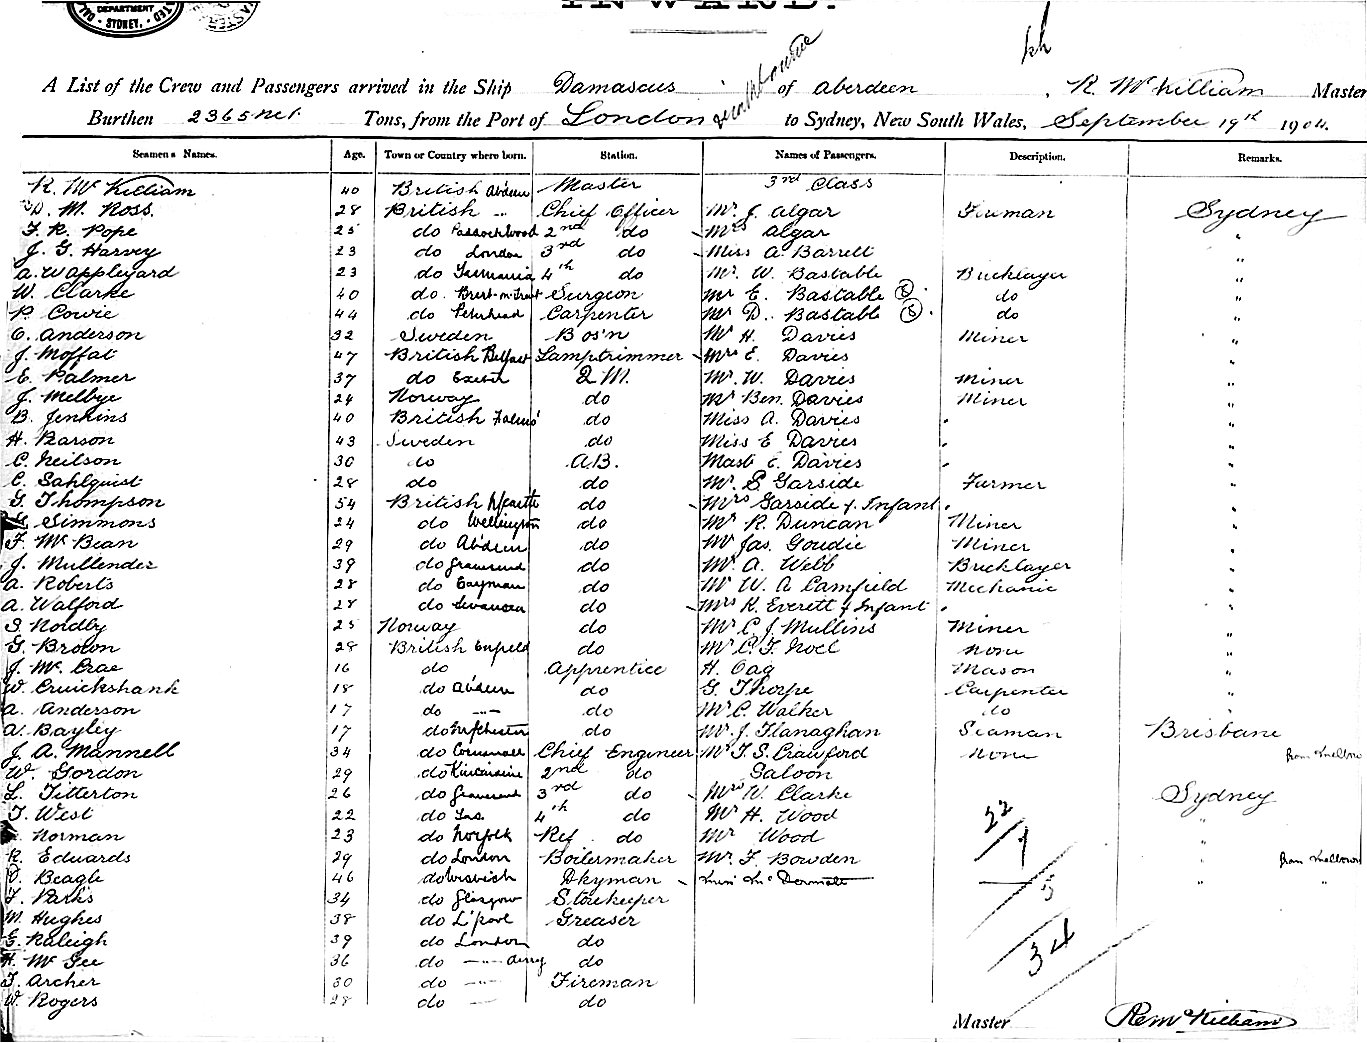 DEPARTMENT
SYDNEY.
INWARD.
A List of the Crew and Passengers arrived in the Ship Damascus of aberdeen, R McKilliam Master
Burthen 2365 net Tons, from the Port of London via Melbourne to Sydney, New South Wales, September 19th 1904.
Seamen's Names. Age. Town or Country where born. Station. Names of Passengers. Description. Remarks.
R. McKilliam 40 British Abdeen Master 3rd Class
D. M. Ross. 28 British " Chief Officer Mr J. Algar Fireman Sydney
F. R. Pope 25 do 2nd do Mrs Algar "
J. G. Harvey 23 do London 3rd do Miss A. Barrett "
A. W Appleyard 23 do Tasmania 4th do Mr. W. Bastable Bricklayer "
W. Clarke 40 do. Surgeon Mr E. Bastable do "
P. Cowie 44 do Peterhead Carpenter Mr D. Bastable do "
C. Anderson 32 Sweden Bos'n Mr H. Davies Miner "
J. Moffat 47 British Belfast Lamptrimmer Mrs E. Davies "
E. Palmer 37 do Exeter Q.M. Mr. W. Davies Miner "
J. Melbye 24 Norway do Mr Ben. Davies Miner "
B. Jenkins 40 British do Miss A. Davies "
H. Parson 43 Sweden do Miss E Davies "
C. Neilson 30 do A.B. Mast E. Davies "
C. Sahlquist 28 do do Mr. S Garside Farmer "
G. Thompson 54 British do Mrs Garside & Infant "
Simmons 24 do Wellington do Mr R. Duncan Miner "
F. McBean 29 do Abdeen do Mr Jas. Goudie Miner "
J. Mullender 39 do Gravesend do Mr A. Webb Bricklayer "
A. Roberts 28 do Cayman do Mr W. A Camfield Mechanic "
A. Walford 28 do Swansea do Mrs K. Everett & Infant "
S. Nordby 25 Norway do Mr C J Mullins Miner "
G. Brown 28 British Enfield do Mr C. F. Noel None "
J. McCrae 16 do Apprentice H. Oag Mason "
W. Cruickshank 18 do Abdeen do G. Thorpe Carpenter "
A. Anderson 17 do " do Mr C. Walker do "
A. Bayley 17 do do Mr. J. Flanaghan Seaman Brisbane
J. A. Mannell 34 do Cornwall Chief Engineer Mr T. S. Crawford None from Melbne
W. Gordon 29 do Kincardine 2nd do Saloon
L. Titterton 26 do Gravesend 3rd do Mrs W. Clarke Sydney
T. West 22 do 4th do Mr H. Wood "
Norman 23 do Norfolk Ref. do Mr Wood 22
R. Edwards 29 do London Boilermaker Mr. F. Bowden 7 " from Melbourne
Beagle 46 do Wisbech Dkyman Miss McDermott " "
F. Parks 34 do Glasgow Storekeeper 5
M. Hughes 38 do L'pool Greaser
E. Raleigh 39 do London do
H. McGee 36 do Derry do 34
J. Archer 30 do " Fireman
W. Rogers 28 do " do
Master R McKilliam